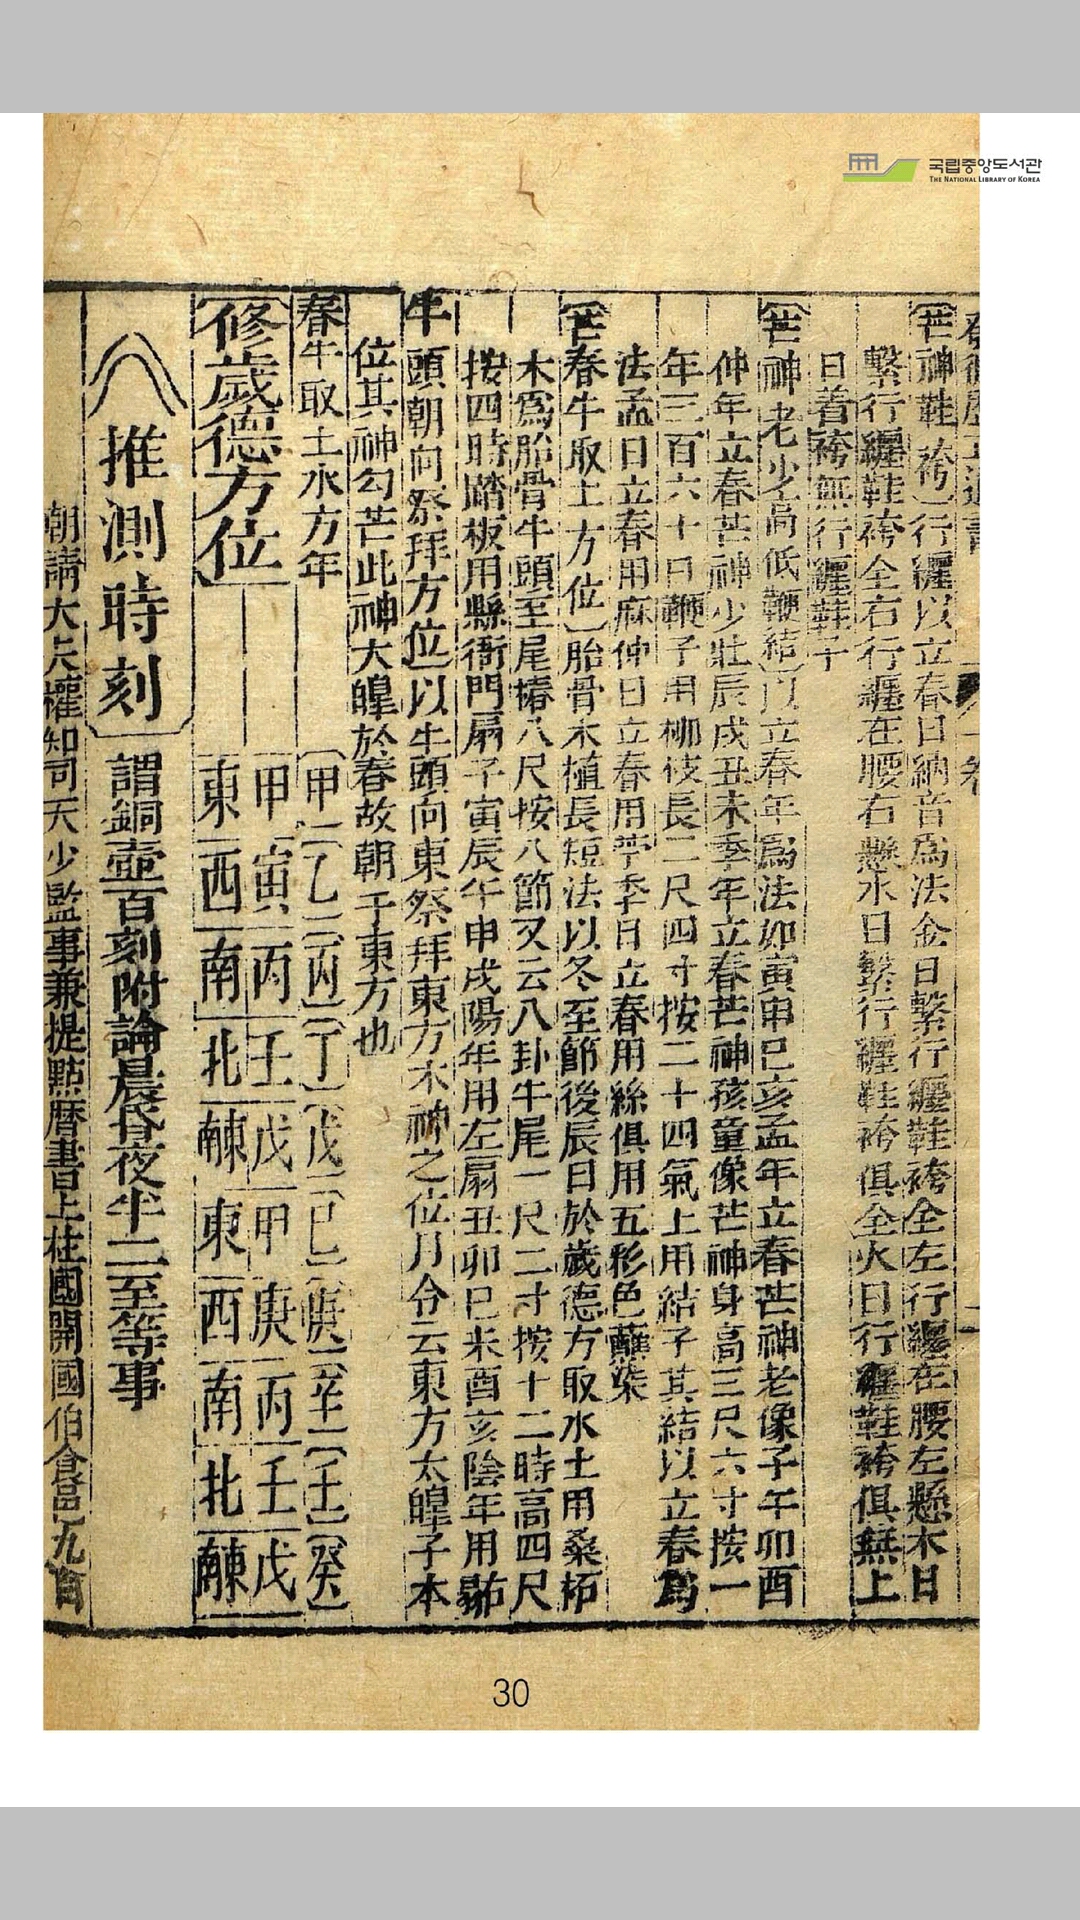 국립중앙도서관
THE NATIONAL LIBRARY OF KOREA
芒神鞋袴行纏以立春日納音爲法金日繫行纏鞋袴全左行纏在腰左懸木日
繫行纏鞋袴全右行纏在腰右懸水日繫行纏鞋袴俱全火日行纏鞋袴俱無土
日着袴無行纏鞋子
芒神老少高低鞭結以立春年爲法如寅申巳亥孟年立春芒神老像子午卯酉
仲年立春芒神少壯辰戌丑未季年立春芒神孩童像芒神身高三尺六寸按一
年三百六十日鞭子用柳伎長二尺四寸按二十四氣上用結子其結以立春爲
法孟日立春用麻仲日立春用苧季日立春用絲俱用五彩色蘸染
芒春牛取土方位胎骨木植長短法以冬至節後辰日於歲德方取水土用桑柘
木爲胎骨牛頭至尾樁八尺按八節又云八卦牛尾一尺二寸按十二時高四尺
按四時踏板用縣衙門扇子寅辰午申戌陽年用左扇丑卯巳未酉亥陰年用右
牛頭朝向祭拜方位以牛頭向東祭拜東方木神之位月令云東方太皥子本
位其神勾芒此神大皥於春故朝于東方也
春牛取土水方年 甲 乙 丙 丁 戊 己 庚 辛 壬 癸
修歲德方位 甲 寅 丙 壬 戊 甲 庚 丙 壬 戊
東 西 南 北 東南 東 西 南 北 東南
推測時刻 謂銅壺百刻附論晨昏夜半二至等事
朝請大夫權知司天少監事兼提點曆書上柱國開國伯食邑九百
30